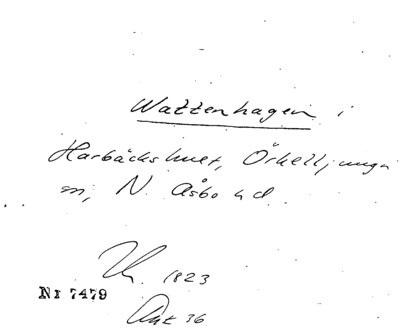 Wattenhagen i
Harbäckshult, Örkelljunga
sn, N. Åsbo hd
1823
Nr 7479
Akt 36